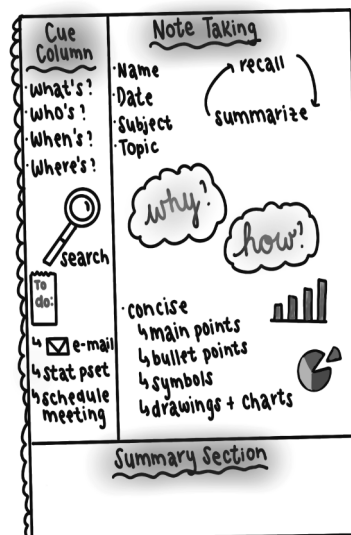 Cue
Column
·What's?
·Who's?
·When's?
·Where's?
search
To
do:
↳ e-mail
↳ stat pset
↳ schedule
meeting
Note Taking
·Name
·Date
·Subject
·Topic
recall
summarize
why?
how?
·concise
↳ main points
↳ bullet points
↳ symbols
↳ drawings + charts
Summary Section